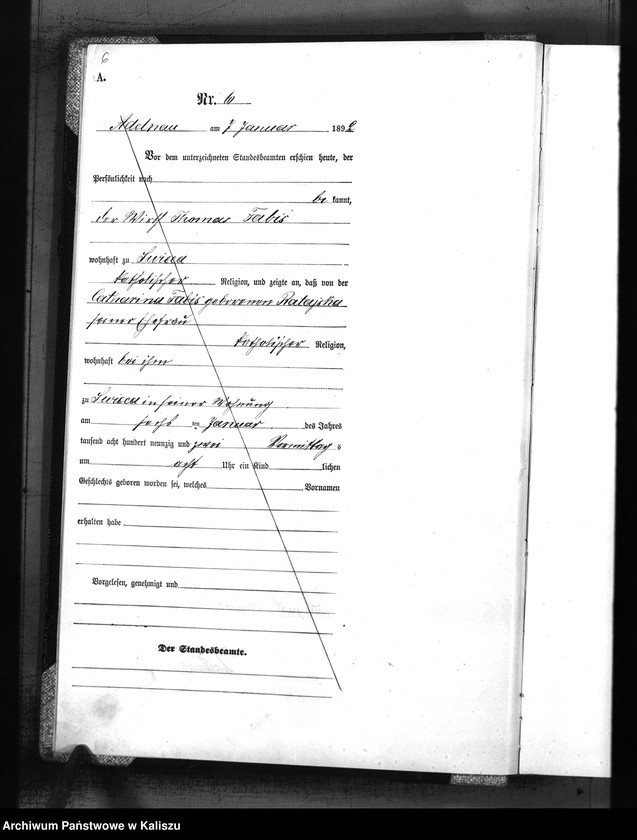 6
A.
Nr. 6
Adelnau am 7 Januar 1892
Vor dem unterzeichneten Standesbeamten erschien heute, der
Persönlichkeit nach
be kannt,
der Wirth Thomas Tabis
wohnhaft zu
katholischer Religion, und zeigte an, daß von der
Catharina Tabis geborenen Ratajska
seiner Ehefrau
katholischer Religion,
wohnhaft bei ihm
zu in seiner Wohnung
am sechs ten Januar des Jahres
tausend acht hundert neunzig und zwei Vormittag s
um acht Uhr ein Kind lichen
Geschlechts geboren worden sei, welches Vornamen
erhalten habe
Vorgelesen, genehmigt und
Der Standesbeamte.
Archiwum Państwowe w Kaliszu